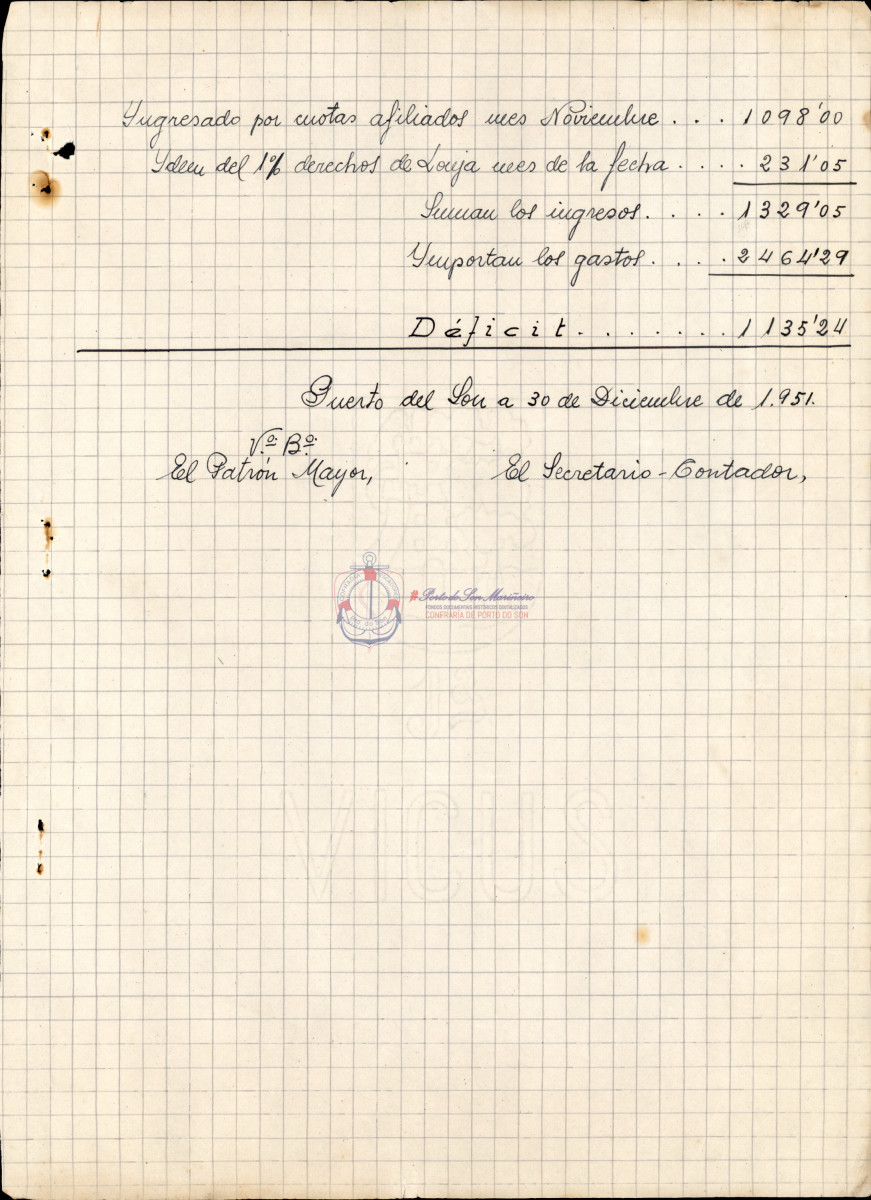 Yngresado por cuotas afiliados mes Noviembre . . . 1098'00
Ydem del 1% derechos de Lonja mes de la fecha . . . . 231'05
Suman los ingresos. . . . 1329'05
Ymportan los gastos. . . . 2464'29
Déficit. . . . . . . 1135'24
Puerto del Son a 30 de Diciembre de 1.951.
V.º B.º
El Patrón Mayor, El Secretario-Contador,
#Porto do Son Mariñeiro
FONDOS DOCUMENTAIS HISTÓRICOS DIXITALIZADOS
CONFRARÍA DE PORTO DO SON
VICUS